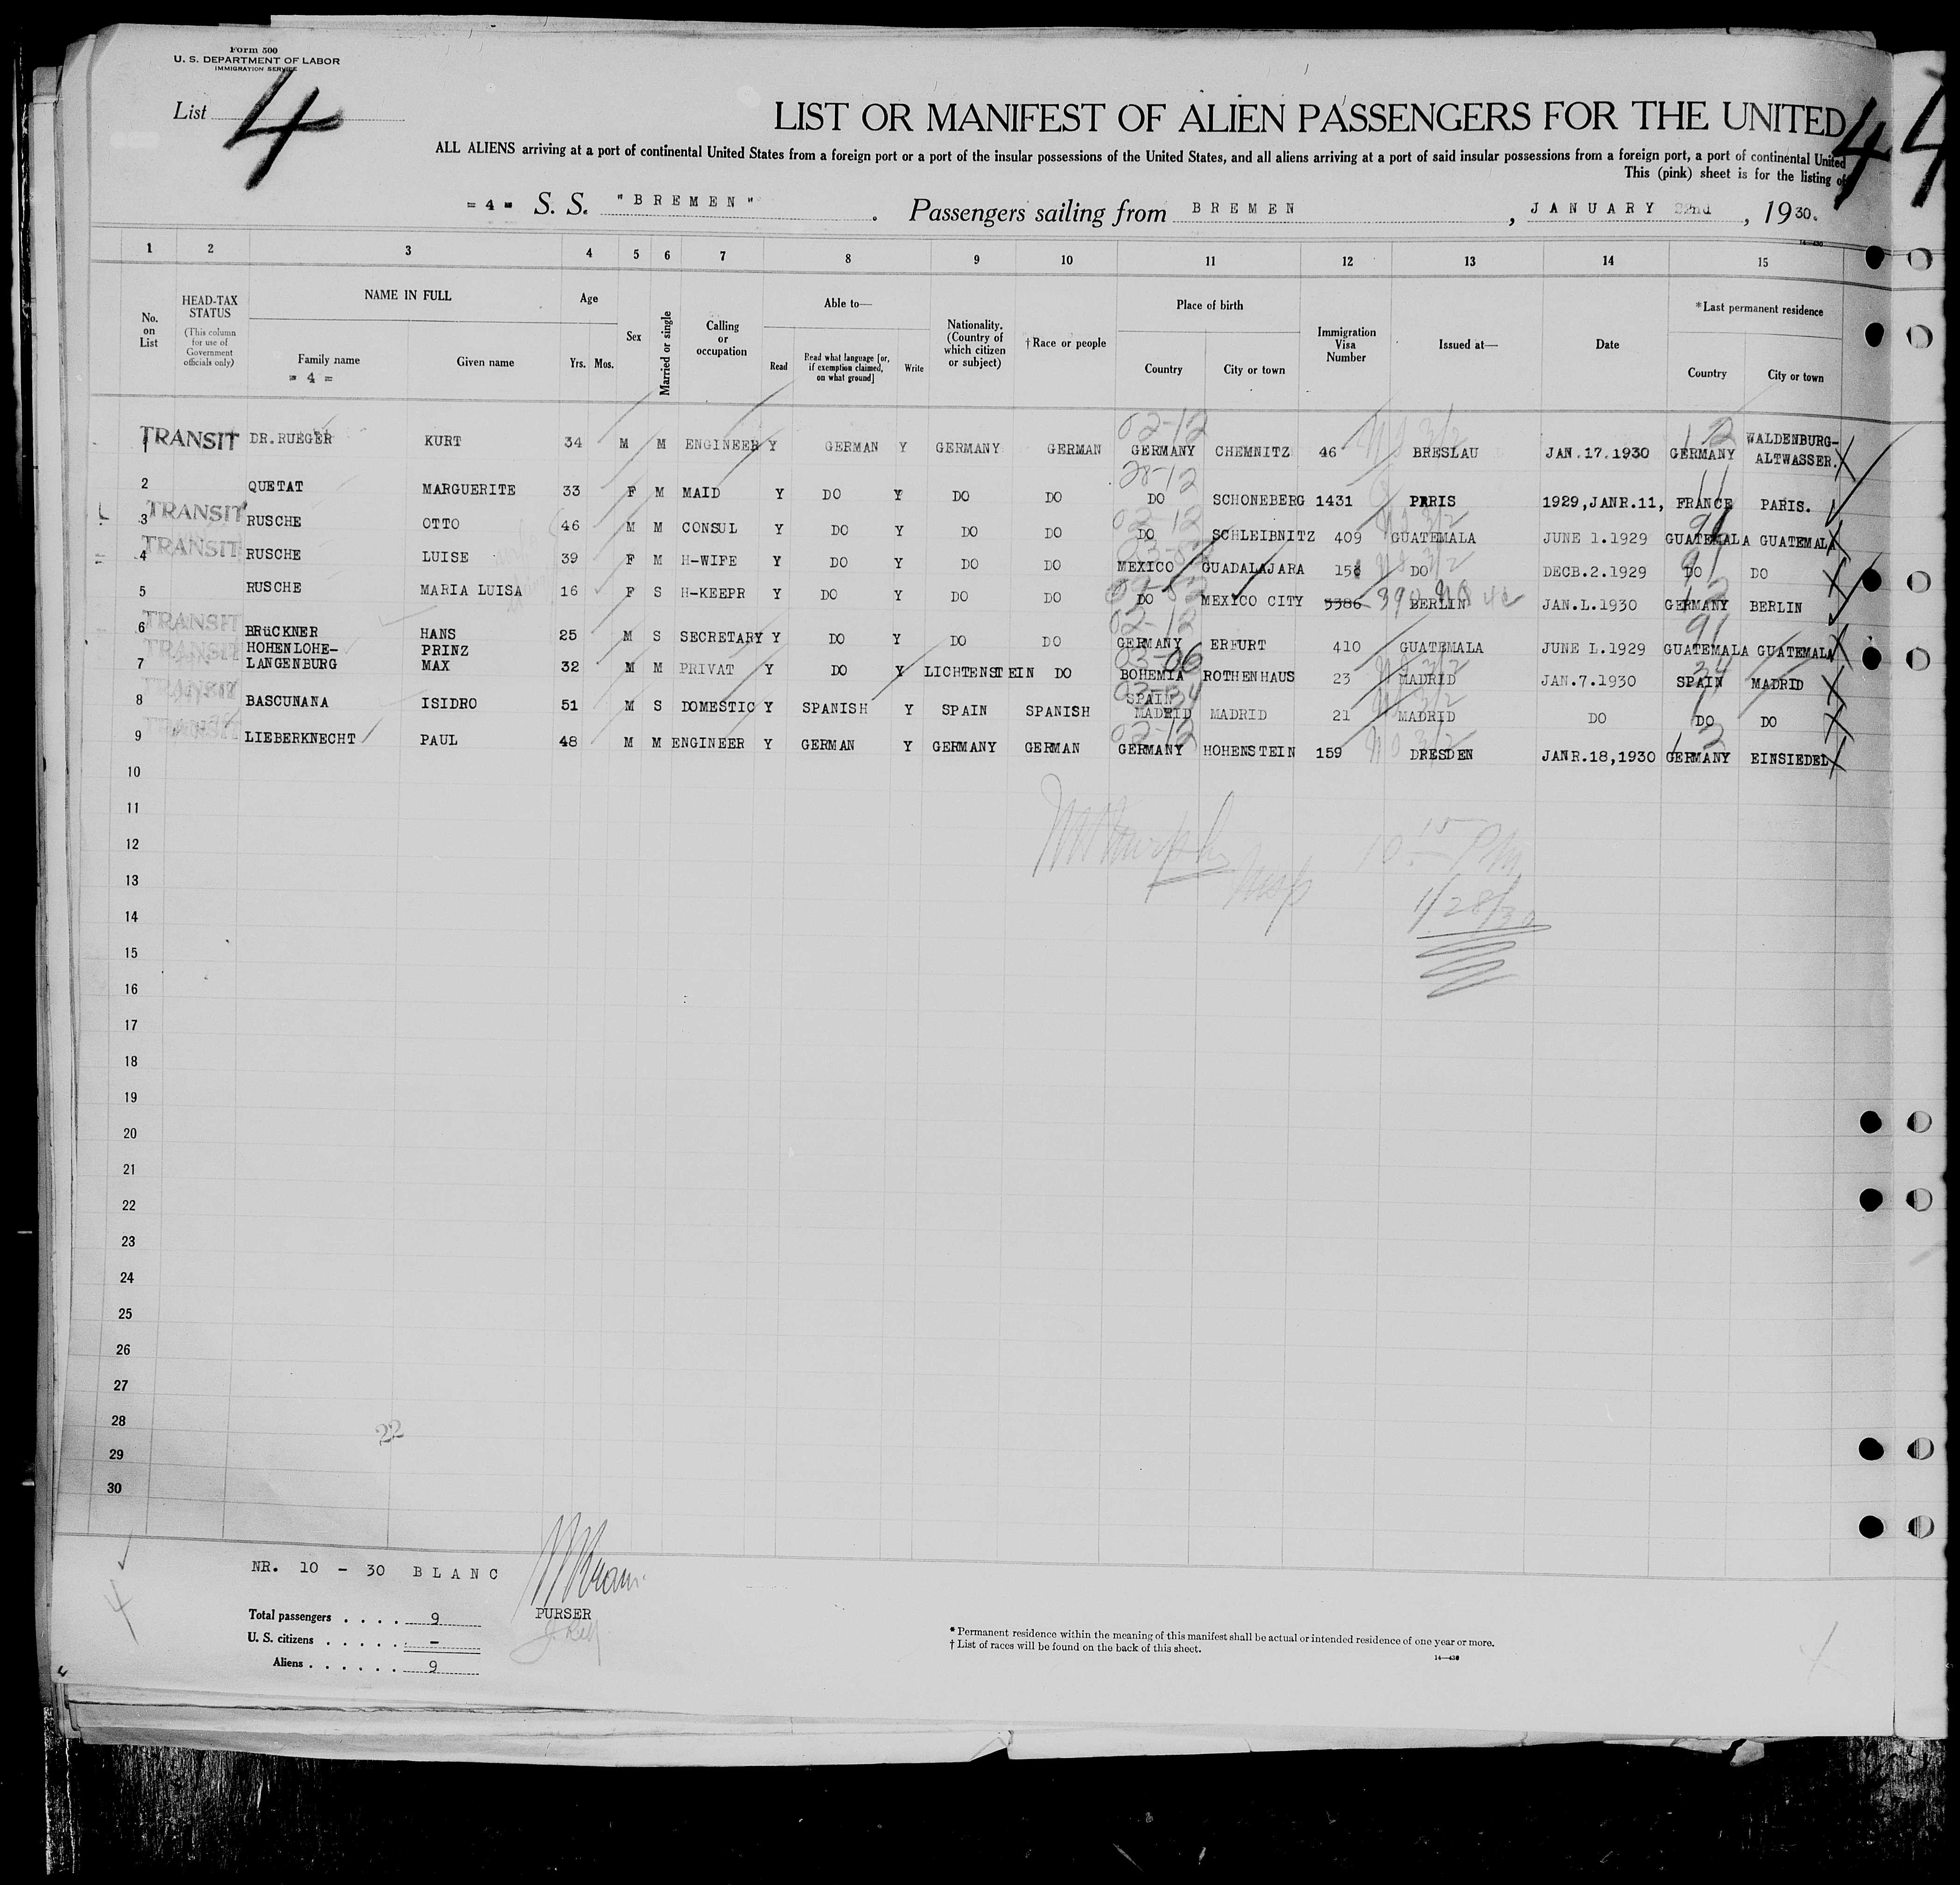 Form 500
U. S. DEPARTMENT OF LABOR
IMMIGRATION SERVICE
List 4
LIST OR MANIFEST OF ALIEN PASSENGERS FOR THE UNITED
4 4
ALL ALIENS arriving at a port of continental United States from a foreign port or a port of the insular possessions of the United States, and all aliens arriving at a port of said insular possessions from a foreign port, a port of continental United
This (pink) sheet is for the listing of
= 4 = S. S. "BREMEN" . Passengers sailing from BREMEN , JANUARY 22nd , 1930.
14—430
1 2 3 4 5 6 7 8 9 10 11 12 13 14 15
No. on List
HEAD-TAX STATUS
(This column for use of Government officials only)
NAME IN FULL
Family name
= 4 =
Given name
Age
Yrs. Mos.
Sex
Married or single
Calling or occupation
Able to—
Read
Read what language [or, if exemption claimed, on what ground]
Write
Nationality. (Country of which citizen or subject)
†Race or people
Place of birth
Country
City or town
Immigration Visa Number
Issued at—
Date
*Last permanent residence
Country
City or town
TRANSIT DR.RUEGER KURT 34 M M ENGINEER Y GERMAN Y GERMANY GERMAN 02-12 GERMANY CHEMNITZ 46 BRESLAU JAN.17.1930 GERMANY WALDENBURG-ALTWASSER.
2 QUETAT MARGUERITE 33 F M MAID Y DO Y DO DO 28-12 DO SCHONEBERG 1431 PARIS 1929,JANR.11, FRANCE PARIS.
TRANSIT 3 RUSCHE OTTO 46 M M CONSUL Y DO Y DO DO 02-12 DO SCHLEIBNITZ 409 GUATEMALA JUNE 1.1929 91 GUATEMALA GUATEMALA
TRANSIT 4 RUSCHE LUISE 39 F M H-WIFE Y DO Y DO DO MEXICO GUADALAJARA 158 DO DECB.2.1929 91 DO DO
5 RUSCHE MARIA LUISA 16 F S H-KEEPR Y DO Y DO DO DO MEXICO CITY 5386 BERLIN JAN.L.1930 12 GERMANY BERLIN
TRANSIT 6 BRüCKNER HANS 25 M S SECRETARY Y DO Y DO DO 02-12 GERMANY ERFURT 410 GUATEMALA JUNE L.1929 91 GUATEMALA GUATEMALA
TRANSIT HOHENLOHE- PRINZ
7 LANGENBURG MAX 32 M M PRIVAT Y DO Y LICHTENSTEIN DO 03-06 BOHEMIA ROTHENHAUS 23 MADRID JAN.7.1930 34 SPAIN MADRID
TRANSIT 8 BASCUNANA ISIDRO 51 M S DOMESTIC Y SPANISH Y SPAIN SPANISH SPAIN MADRID MADRID 21 MADRID DO DO DO
TRANSIT 9 LIEBERKNECHT PAUL 48 M M ENGINEER Y GERMAN Y GERMANY GERMAN 02-12 GERMANY HOHENSTEIN 159 DRESDEN JANR.18,1930 GERMANY EINSIEDEL
10
11
12
13
14
15
16
17
18
19
20
21
22
23
24
25
26
27
28
29
30
10 15 PM
1/28/30
22
NR. 10 - 30 BLANC
PURSER
Total passengers . . . . 9
U. S. citizens . . . . . -
Aliens . . . . . . 9
* Permanent residence within the meaning of this manifest shall be actual or intended residence of one year or more.
† List of races will be found on the back of this sheet.